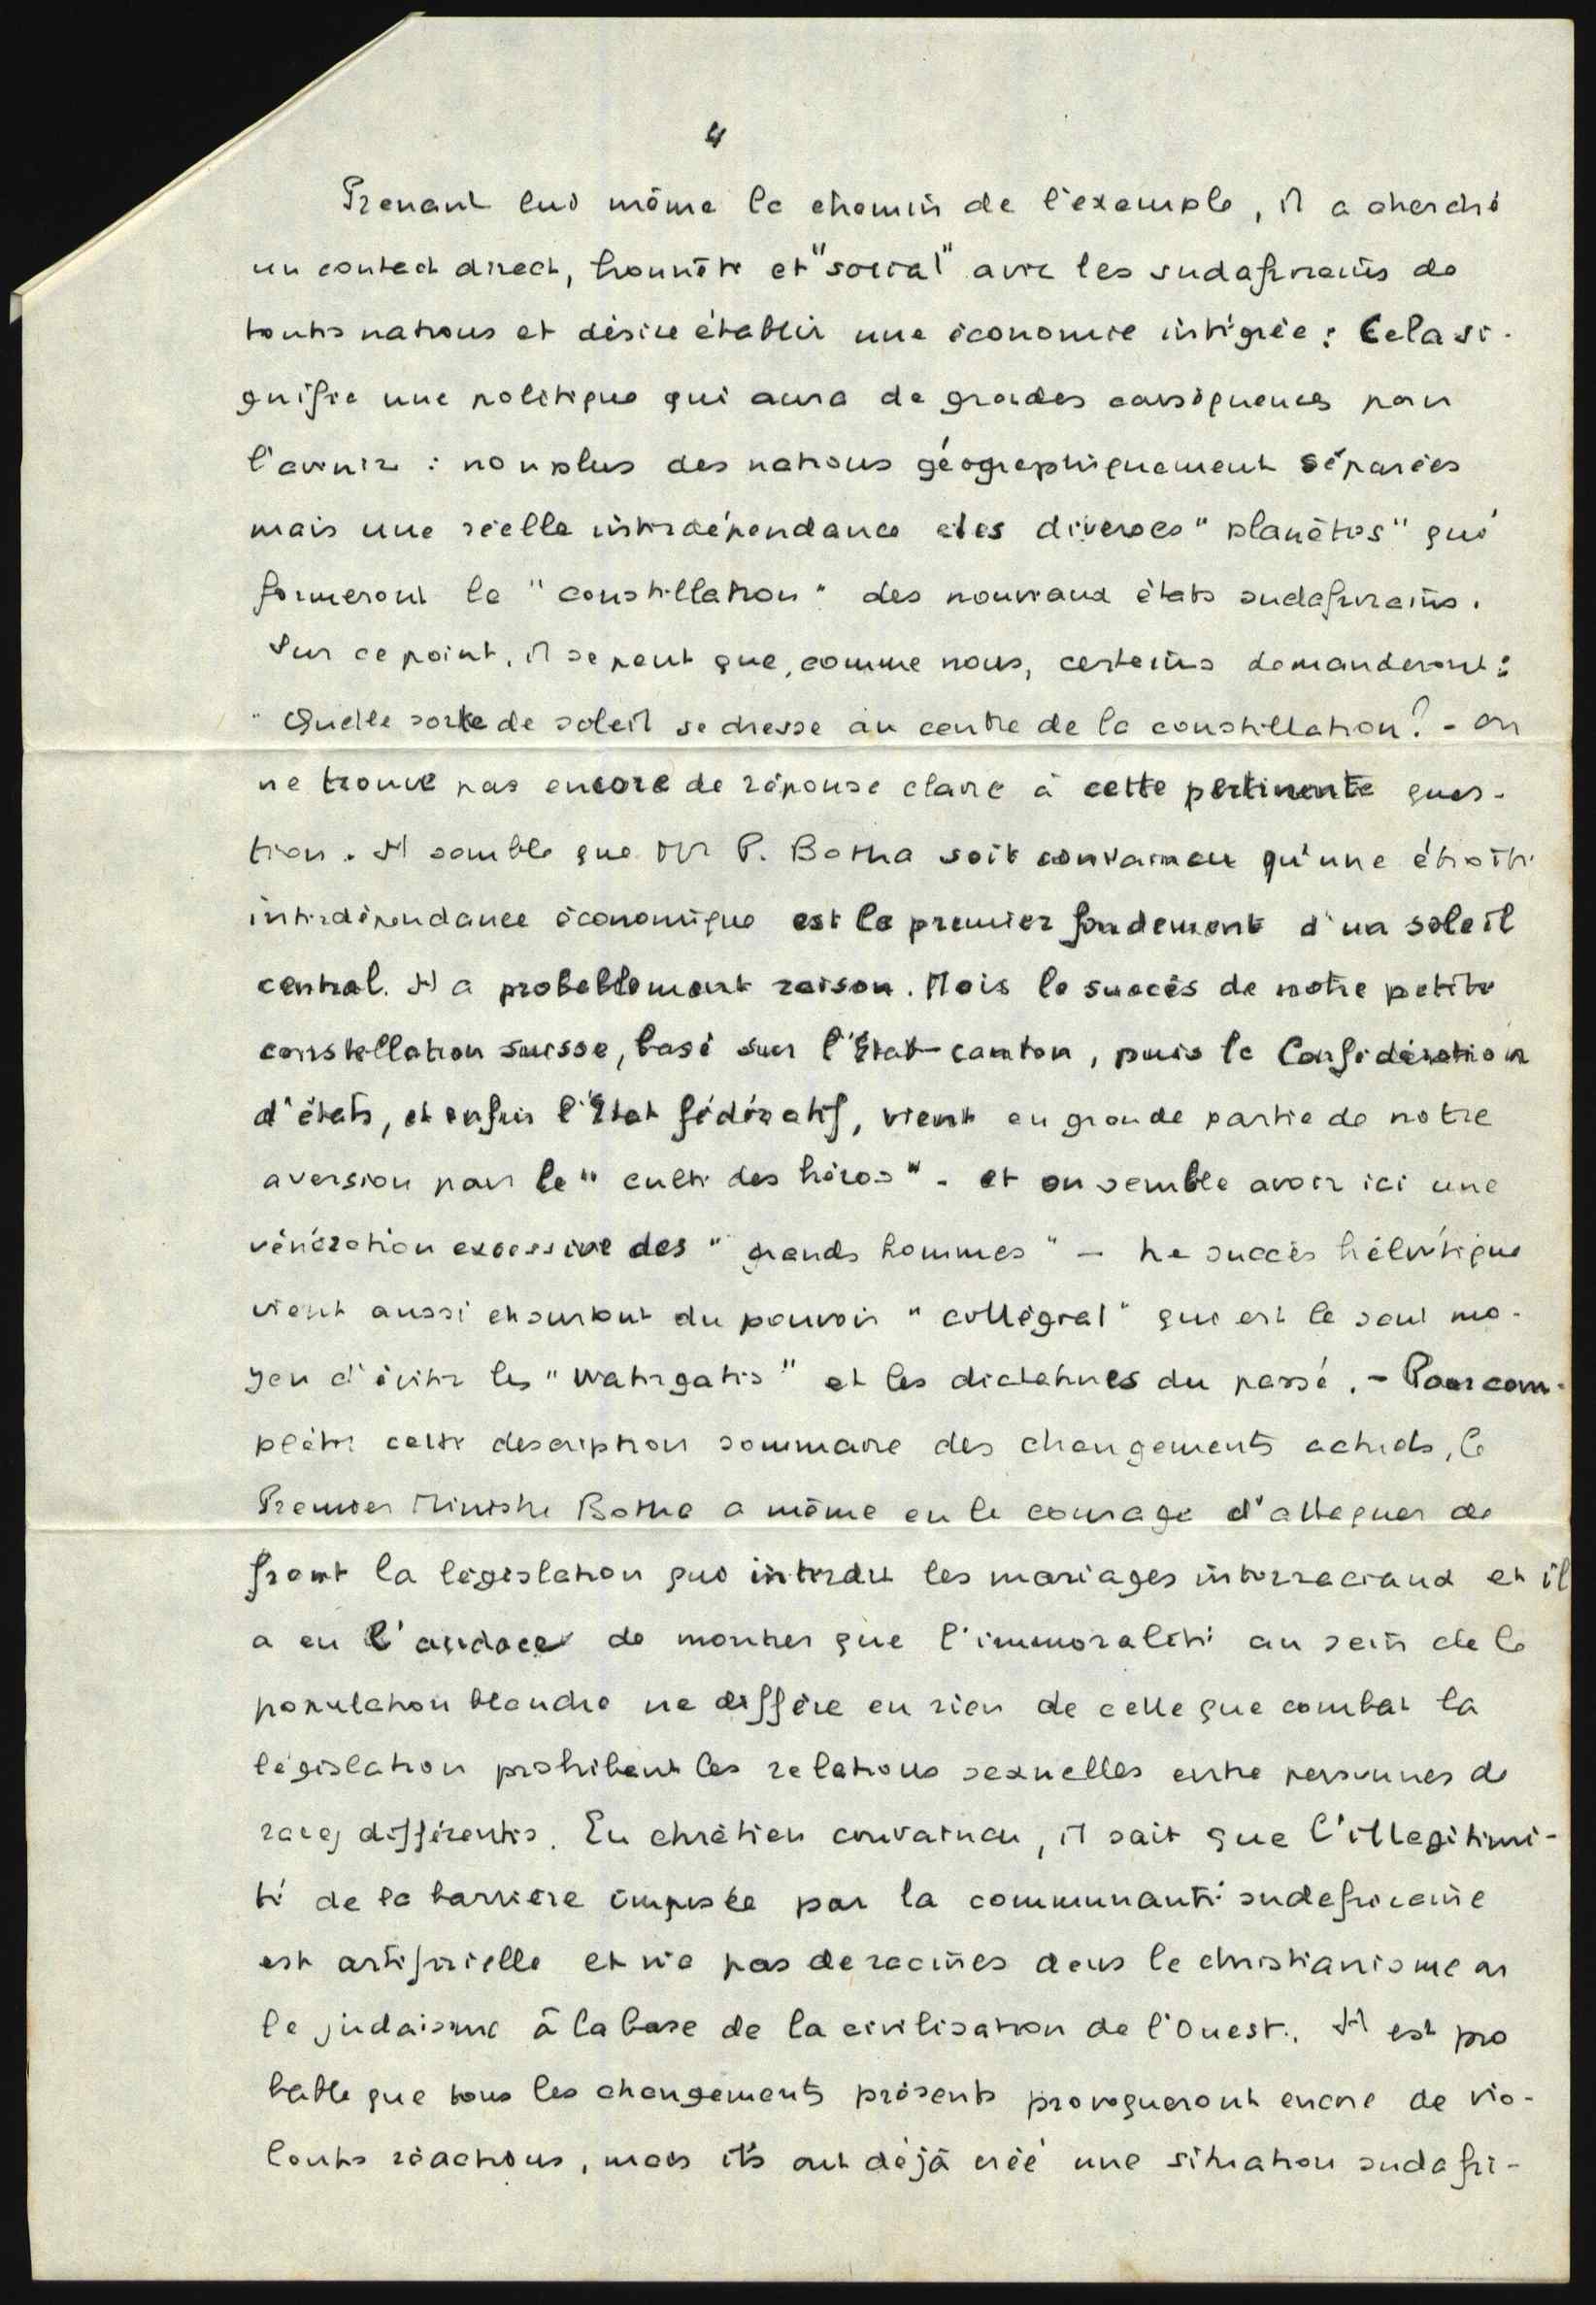 4
Prenant lui même le chemin de l'exemple, il a cherché
un contact direct, honnête et "social" avec les sudafricains de
toutes nations et désire établir une économie intégrée : Cela si-
gnifie une politique qui aura de grandes conséquences pour
l'avenir : non plus des nations géographiquement séparées
mais une réelle interdépendance des diverses "planètes" qui
formeront la "constellation" des nouveaux états sudafricains.
Sur ce point, il se peut que, comme nous, certains demanderont :
"Quelle sorte de soleil se dresse au centre de la constellation ? - On
ne trouve pas encore de réponse claire à cette pertinente ques-
tion. Il semble que Mr P. Botha soit convaincu qu'une étroite
interdépendance économique est le premier fondement d'un soleil
central. Il a probablement raison. Mais le succès de notre petite
constellation suisse, basé sur l'État-canton, puis la Confédération
d'états, et enfin l'État fédératif, vient en grande partie de notre
aversion pour le "culte des héros" - et on semble avoir ici une
vénération excessive des "grands hommes" - Le succès helvétique
vient aussi et surtout du pouvoir "collégial" qui est le seul mo-
yen d'éviter les "watergates" et les dictatures du passé. - Pour com-
pléter cette description sommaire des changements actuels, le
Premier Ministre Botha a même eu le courage d'attaquer de
front la législation qui interdit les mariages interraciaux et il
a eu l'audace de montrer que l'immoralité au sein de la
population blanche ne diffère en rien de celle que combat la
législation prohibant les relations sexuelles entre personnes de
races différentes. En chrétien convaincu, il sait que l'illegitimi-
té de la barrière imposée par la communauté sudafricaine
est artificielle et n'a pas de racines dans le christianisme ou
le judaïsme à la base de la civilisation de l'Ouest. Il est pro
bable que tous les changements présents provoqueront encore de vio-
lentes réactions, mais ils ont déjà créé une situation sudafri-